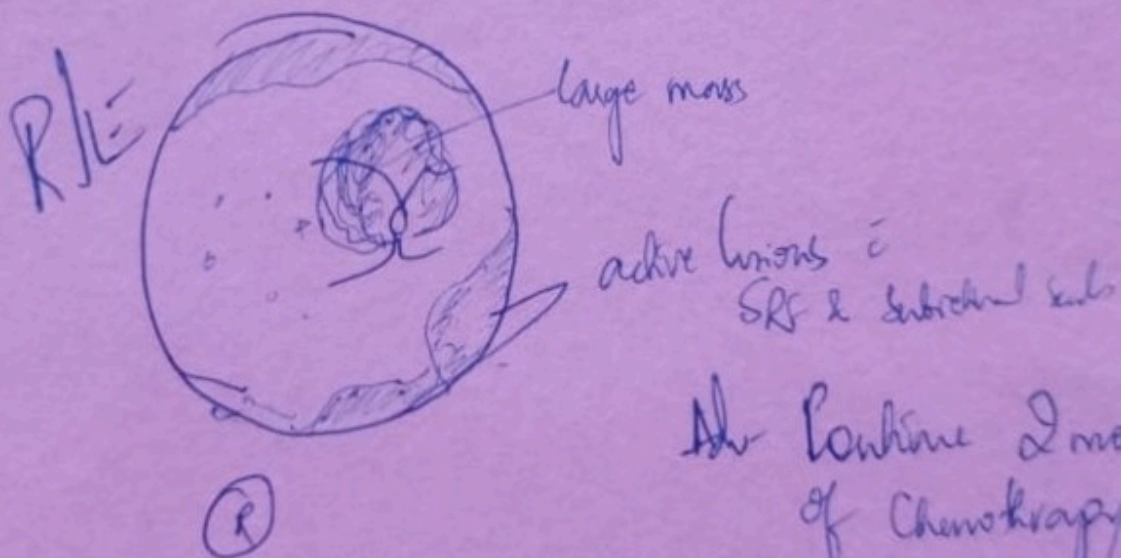 R/E
large mass
active lesions c̄
SRF & subretinal seeds
Adv Continue 2 mo
of Chemothrapy
R